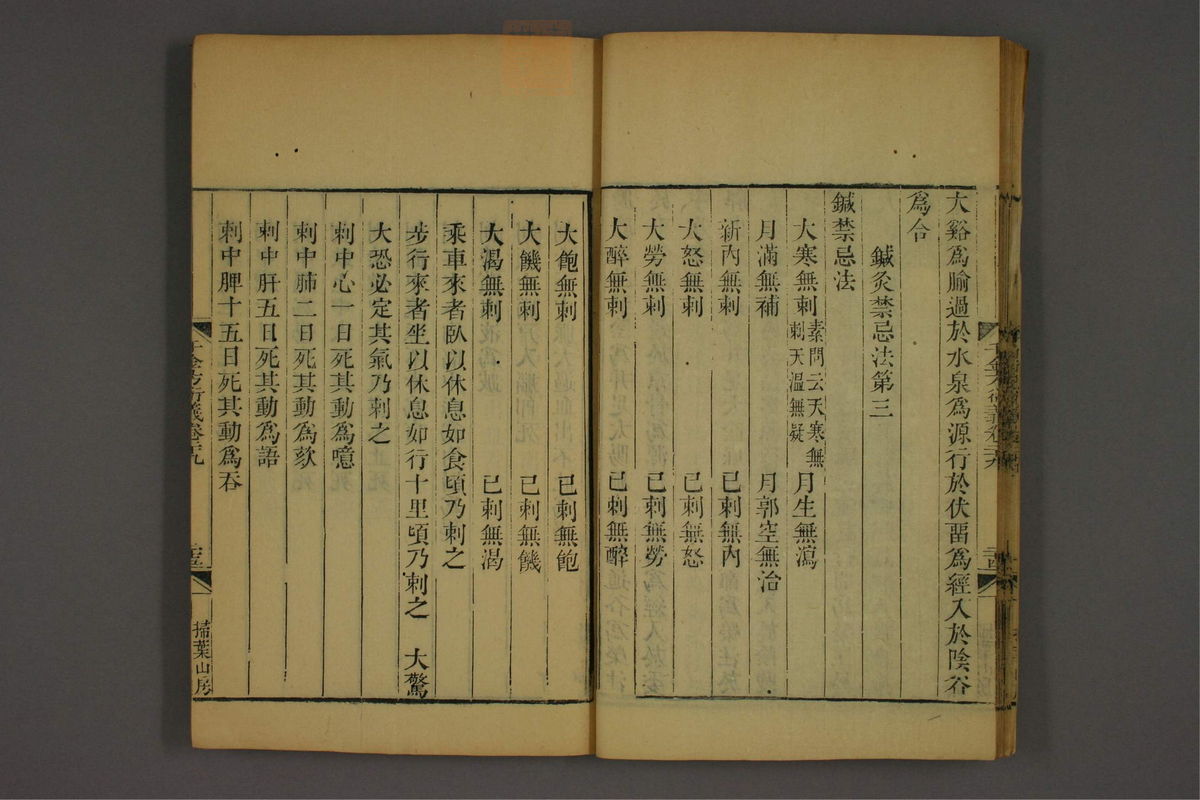 大谿爲腧過於水泉爲源行於伏畱爲經入於陰谷
爲合
鍼灸禁忌法第三
鍼禁忌法
大寒無刺 素問云天寒無刺天溫無疑 月生無瀉
月滿無補 月郭空無治
新內無刺 已刺無內
大怒無刺 已刺無怒
大勞無刺 已刺無勞
大醉無刺 已刺無醉
大飽無刺 已刺無飽
大饑無刺 已刺無饑
大渴無刺 已刺無渴
乘車來者臥以休息如食頃乃刺之
步行來者坐以休息如行十里頃乃刺之 大驚
大恐必定其氣乃刺之
刺中心一日死其動爲噫
刺中肺二日死其動爲欬
刺中肝五日死其動爲語
刺中脾十五日死其動爲吞
千金方衍義卷二十九
掃葉山房